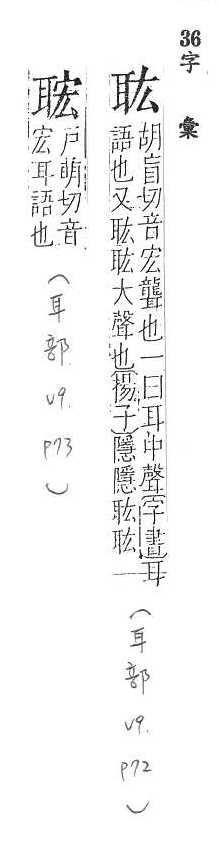 36字彙
耾
胡盲切音宏聾也一曰耳中聲〔字書〕耳
語也又耾耾大聲也〔揚子〕隱隱耾耾—
(耳部 v9. p72)
䎳
戶萌切音
宏耳語也
(耳部 v9. p73)